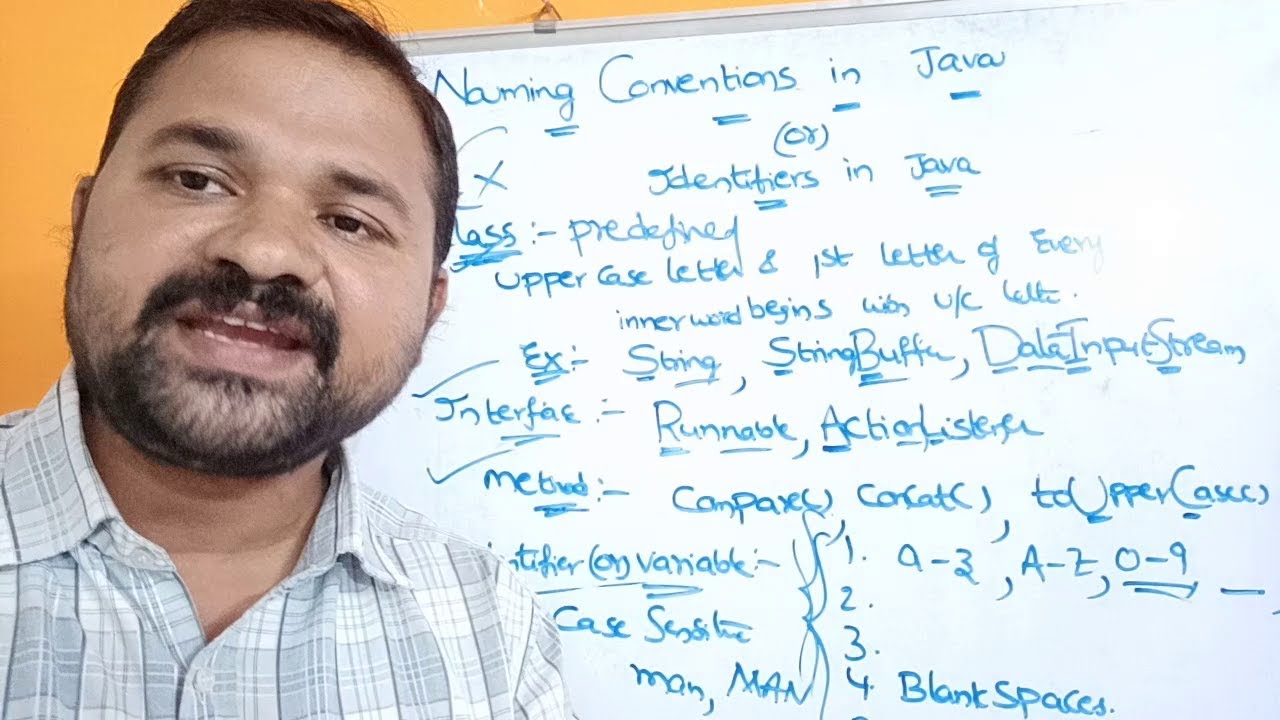 Naming Conventions in Java
(or)
X Identifiers in Java
lass :- predefined
Upper Case letter & 1st letter of Every
inner word begins with U/C lette.
Ex:- String, StringBuffer, DataInputStream,
Interface :- Runnable, ActionListener
Method :- Compare(), Concat(), toUpperCase()
ntifier (or) variable :- 1. a-z, A-Z, 0-9 _,
2.
Case Sensitive 3.
man, MAN 4. Blank Spaces.